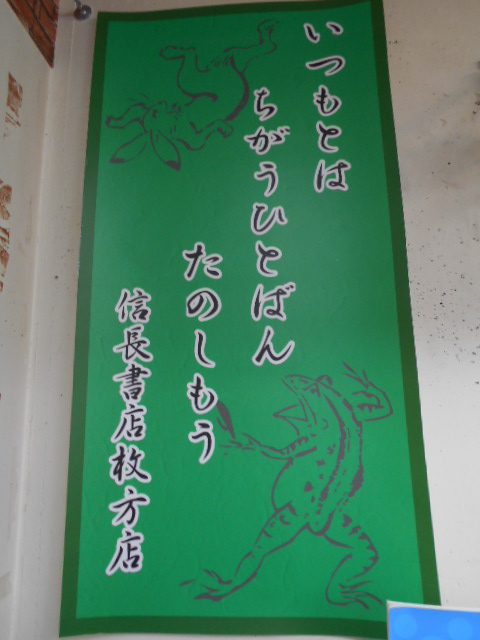 いつもとは
ちがうひとばん
たのしもう
信長書店枚方店